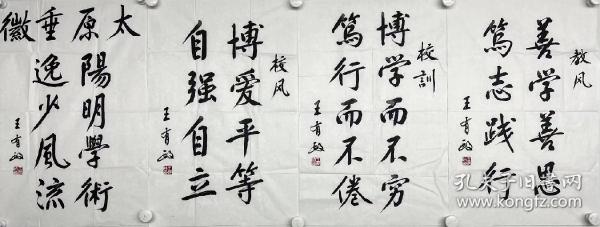 教风
善学善思
笃志践行
王有政
校訓
博学而不穷
笃行而不倦
王有政
校风
博爱平等
自强自立
王有政
太原垂徽
陽明學術
逸少風流
王有政
孔夫子旧书网
www.kongfz.com